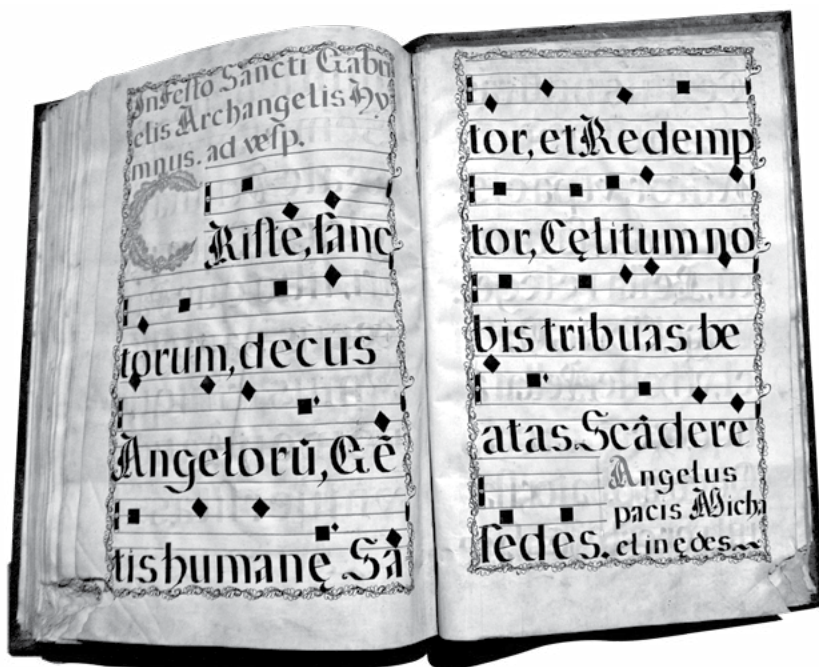 In festo Sancti Gabri
elis Archangelis Hy
mnus. ad vesp.
CRiste, sanc
torum, decus
Angelorū, Gē
tis humanę Sa
tor, et Redemp
tor, Cęlitum no
bis tribuas be
atas. Scādere
sedes. Angelus
pacis Micha
el in ędes